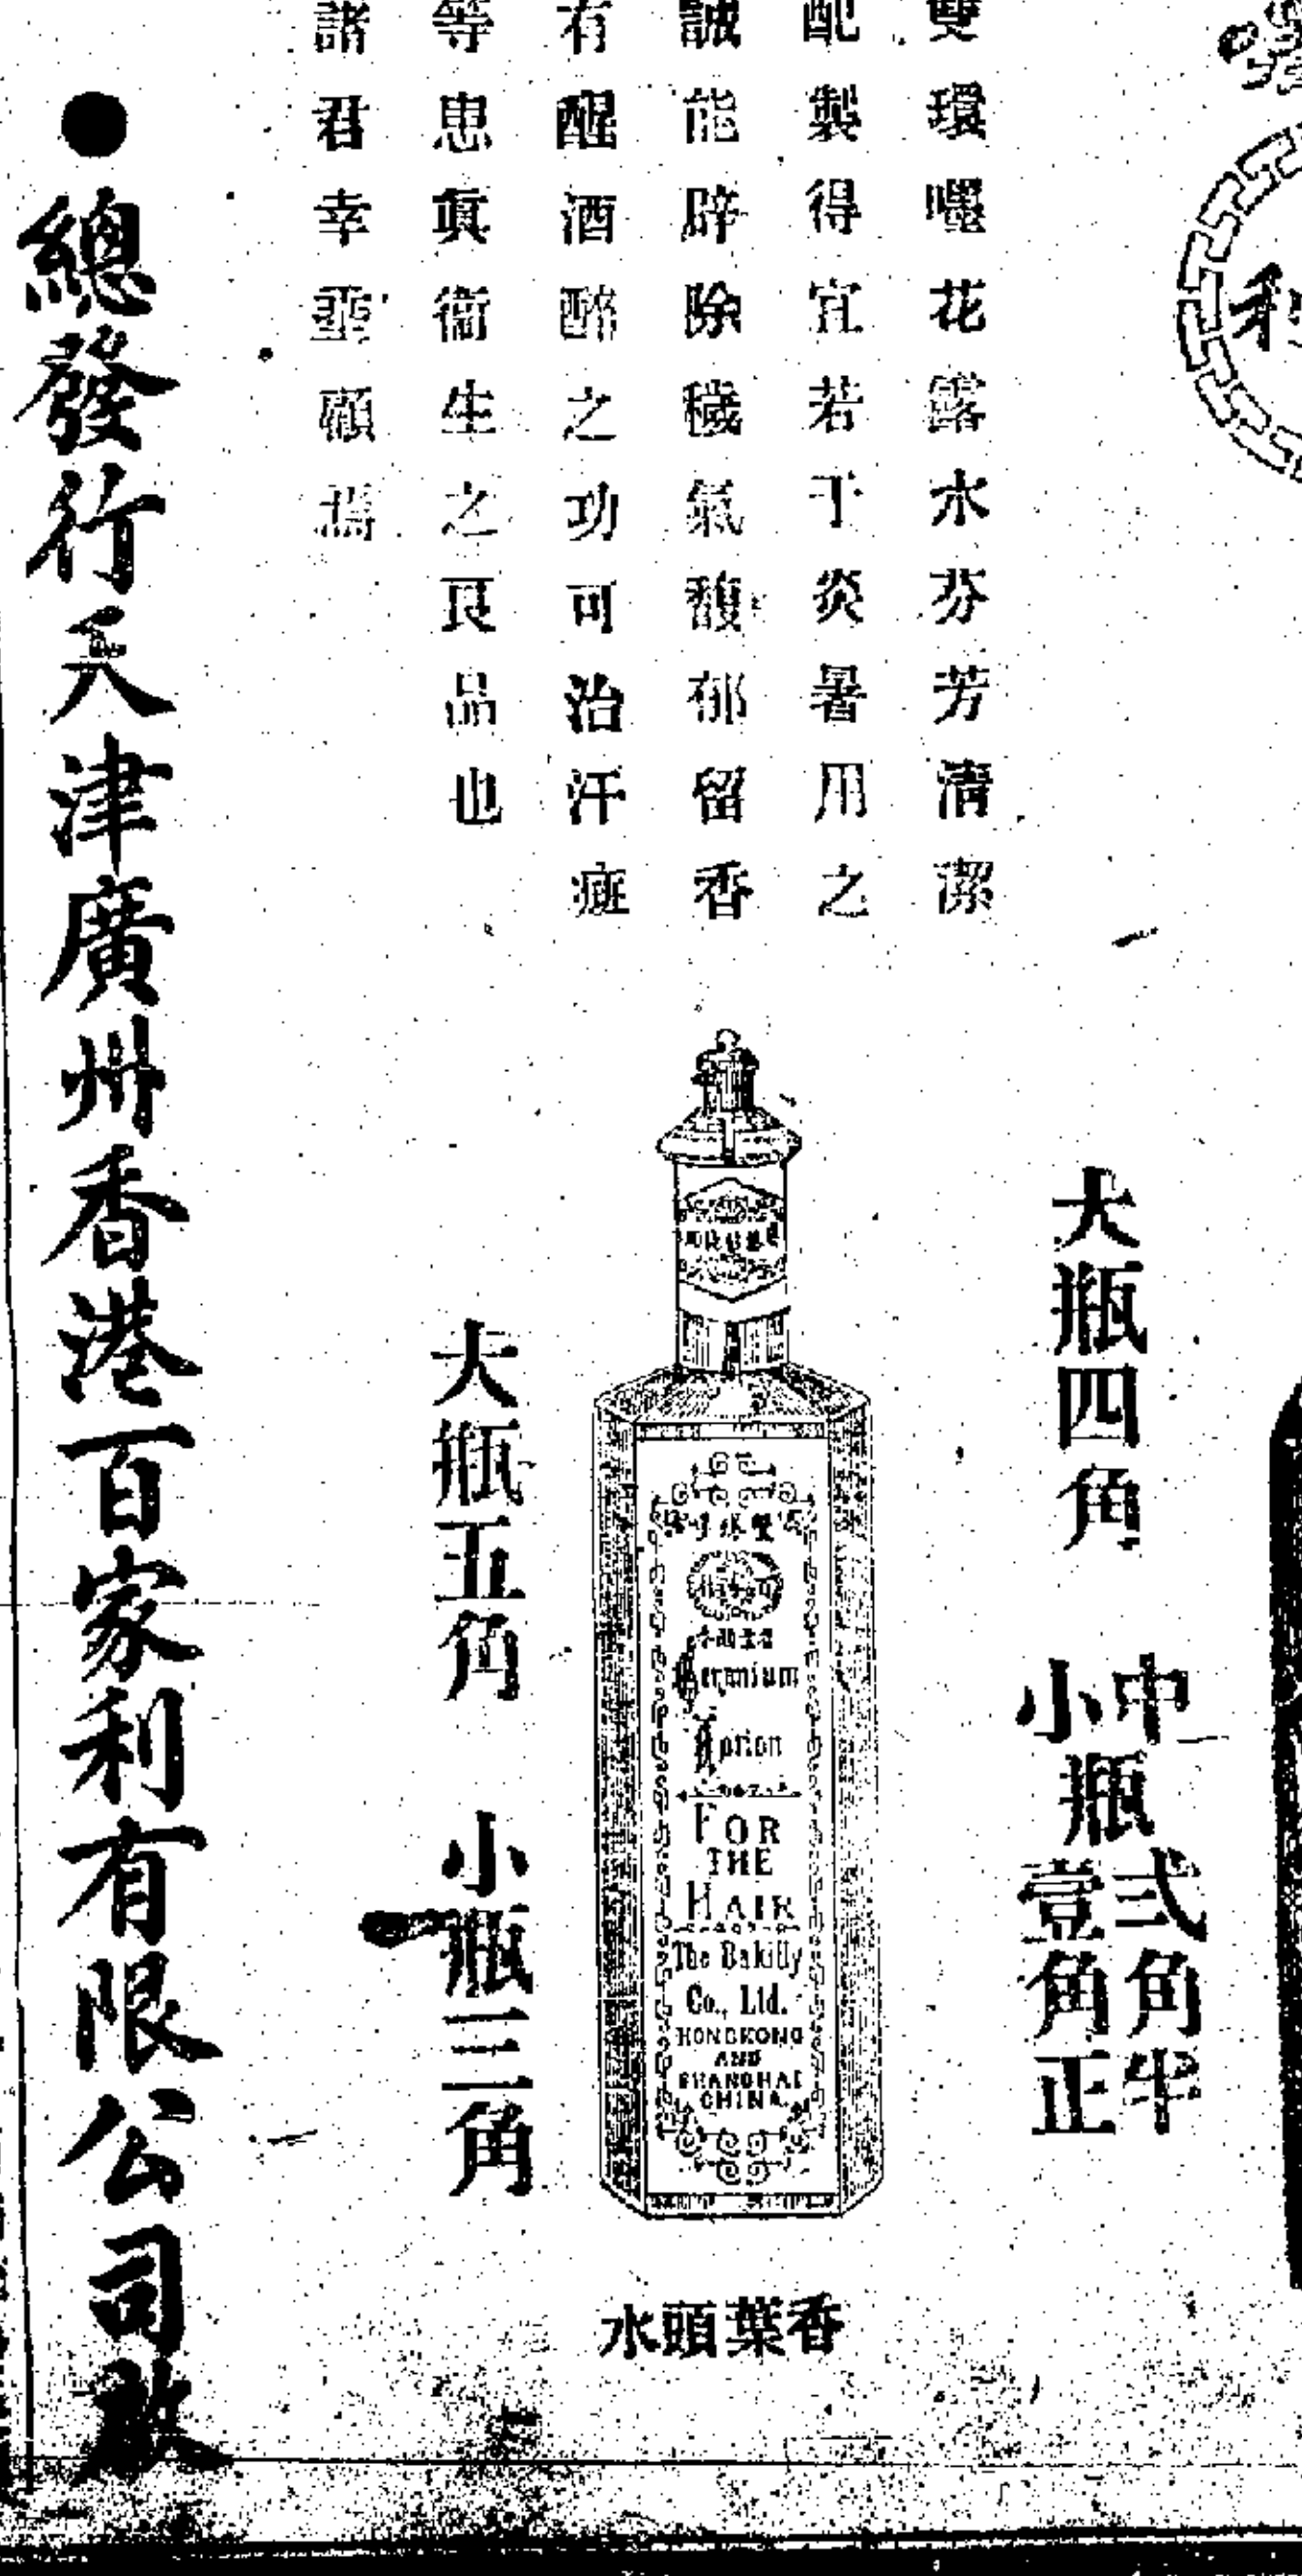 利
雙環嚜花露水芬芳清潔
配製得宜若干炎暑用之
誠能辟除穢氣馥郁留香
有醒酒醉之功可治汗斑
等患眞衞生之良品也
諸君幸垂顧焉
大瓶四角
中瓶弍角半
小瓶壹角正
Geranium
Lotion
FOR
THE
HAIR
The Bakilly
Co., Ltd.
HONGKONG
AND
SHANGHAI
CHINA
水頭葉香
大瓶五角 小瓶三角
●總發行天津廣州香港百家利有限公司啟